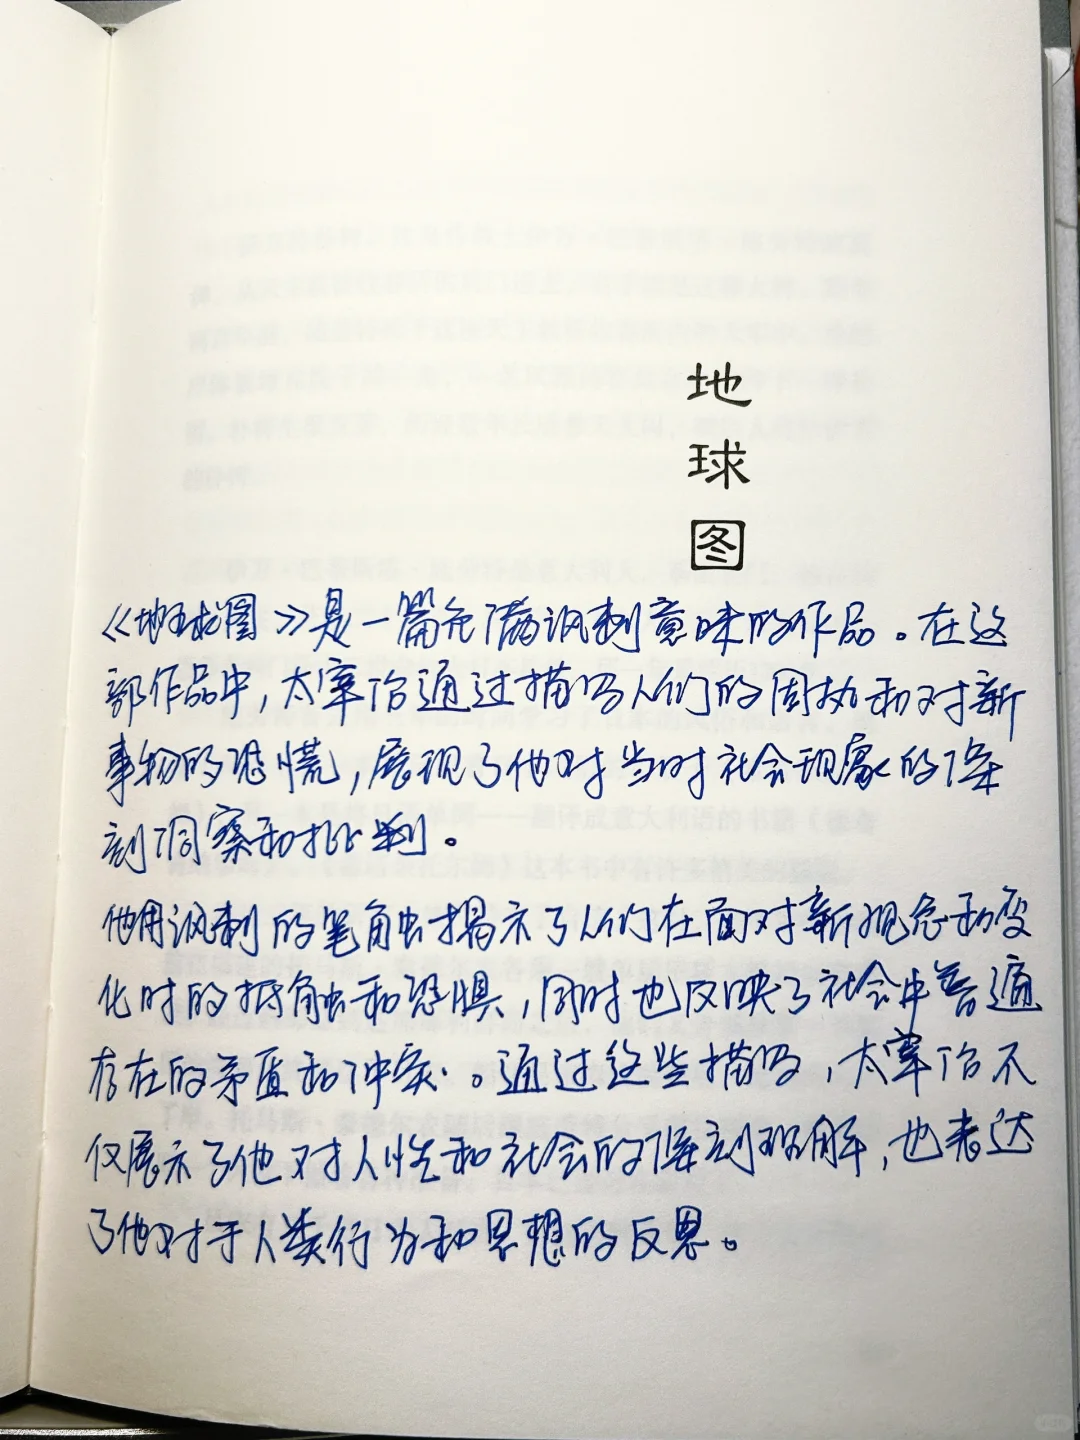 地
球
图
《地球图》是一篇充满讽刺意味的作品。在这
部作品中，太宰治通过描写人们的固执和对新
事物的恐慌，展现了他对当时社会现象的深
刻洞察和批判。
他用讽刺的笔触揭示了人们在面对新观念和变
化时的抵触和恐惧，同时也反映了社会中普遍
存在的矛盾和冲突。通过这些描写，太宰治不
仅展示了他对人性和社会的深刻理解，也表达
了他对于人类行为和思想的反思。